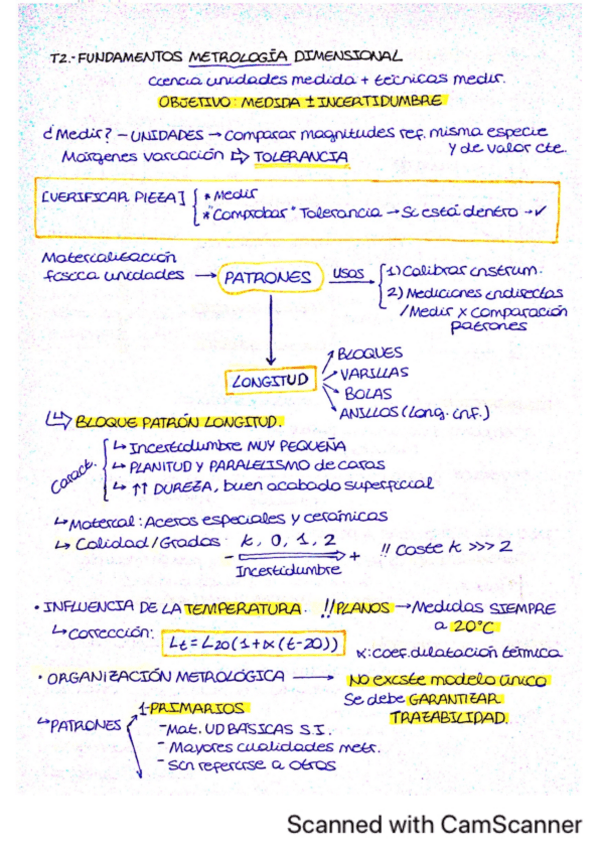 T2.-FUNDAMENTOS METROLOGÍA DIMENSIONAL
ciencia unidades medida + técnicas medir.
OBJETIVO: MEDIDA ± INCERTIDUMBRE
¿Medir? - UNIDADES → comparar magnitudes ref. misma especie
y de valor cte.
Márgenes variación ⇨ TOLERANCIA
[VERIFICAR PIEZA] { * Medir
* "Comprobar" Tolerancia → Si está dentro → ✓
Materialización
física unidades → PATRONES usos { 1) Calibrar instrum.
2) Mediciones indirectas
/ Medir x comparación
patrones
LONGITUD
BLOQUES
VARILLAS
BOLAS
ANILLOS (Long. inf.)
↳ BLOQUE PATRÓN LONGITUD.
Caract. { ↳ Incertidumbre MUY PEQUEÑA
↳ PLANITUD Y PARALELISMO de caras
↳ ↑↑ DUREZA, buen acabado superficial
↳ Material: Aceros especiales y cerámicas
↳ Calidad/Grados: k, 0, 1, 2
- ⇒ + !! Coste k >>> 2
Incertidumbre
• INFLUENCIA DE LA TEMPERATURA. !! PLANOS → Medidas SIEMPRE
a 20°C
↳ Corrección: Lt = L20 (1+α (t-20))
α: coef. dilatación térmica
• ORGANIZACIÓN METROLÓGICA → NO existe modelo único
Se debe GARANTIZAR
TRAZABILIDAD.
↳ PATRONES
1-PRIMARIOS
- Mat. UD BÁSICAS S.I.
- Mayores cualidades metr.
- Sin referirse a otros
Scanned with CamScanner